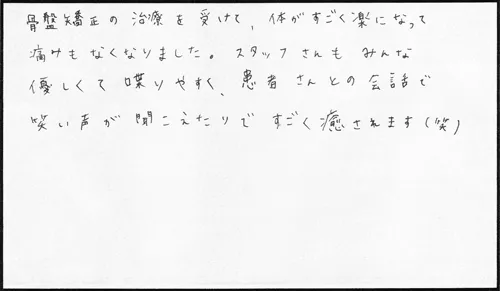 骨盤矯正の治療を受けて、体がすごく楽になって
痛みもなくなりました。スタッフさんもみんな
優しくて喋りやすく、患者さんとの会話で
笑い声が聞こえたりですごく癒されます(笑)